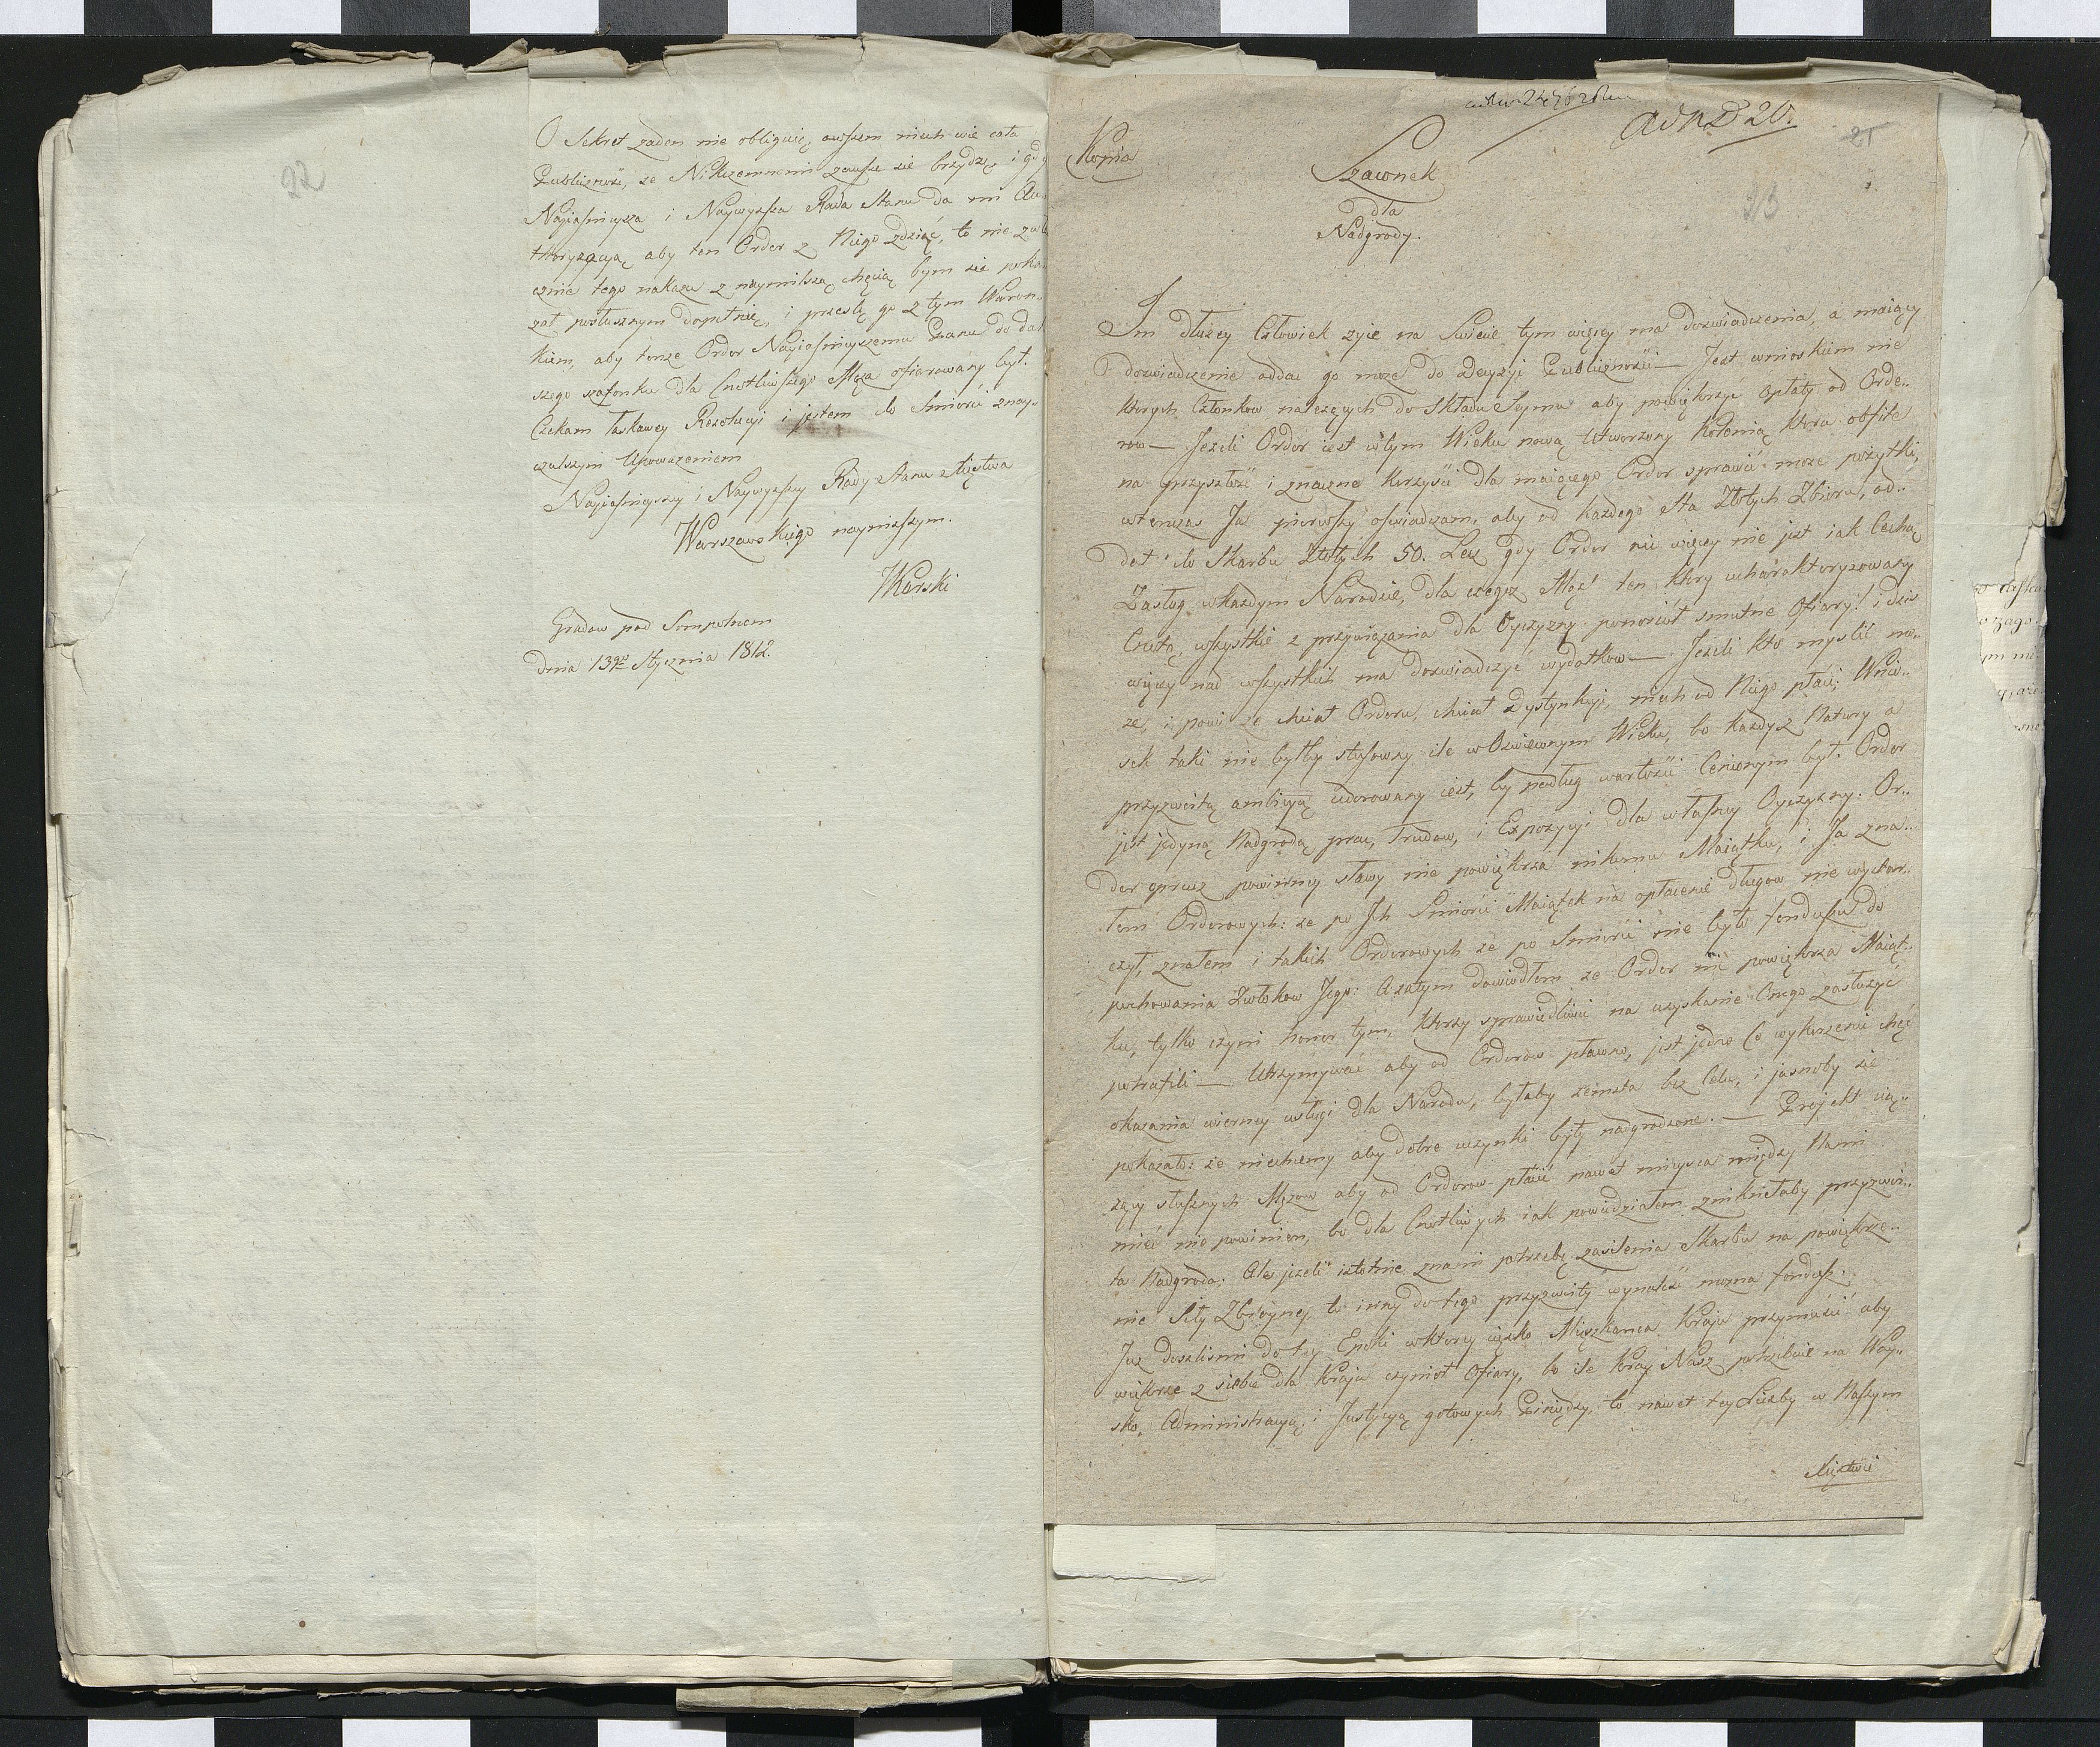 22
O Sekret zaden nie obliguię, owszem niech wie cała
Publiczność, że Nikczemnemi zawsze się brzydzę, i gdy
Nayiaśnieysza i Naywyższa Rada Stanu da mi Au..
thoryzacyą aby ten Order z Niego zdziąć, to nie
cznie tego nakazu z naymilszą chęcią bym się poka..
zał posłusznym dopełnię, i prześlę go z tym Warun..
kiem, aby tenże Order Nayiaśnieyszemu Panu do dal
szego szafunku dla Cnotliwszego Męża ofiarowany był.
Czekam łaskawey Rezolucyi i jestem do Śmierci znay..
czulszym Upoważeniem
Nayiaśnieyszey i Naywyższey Rady Stanu Xięstwa
Warszawskiego nayniższym.
JKarski
Gradow pod Sompolnem
dnia 13go Stycznia 1812.
ad No 20.
21
Kopia
23
Szacunek
dla
Nadgrody.
Im dłużey Człowiek żyie na Świecie tym więcey ma doświadczenia, a maiący
doświadczenie oddać go może do Decyzyi Publiczności — Jest wnioskiem nie
ktorych Członkow należących do Składu Seymu aby powiększyć opłaty od Orde..
row — Jeżeli Order iest w tym Wieku nową utworzony Kolonią ktora obfite
na przyszłość i znaczne korzyści dla maiącego Order sprawić może pożytki,
wtenczas Ja pierwszy oświadczam, aby od każdego Sta Złotych Zbioru, od..
dał do Skarbu Złotych 50. Lecz gdy Order nic więcey nie jest iak Cechą
Zasług w każdym Narodzie, dla czegoż Mąż ten ktory ucharakteryzowany
Cnotą, wszystkie z przywiązania dla Oyczyzny ponosił smutne Ofiary! i dziś
więcey nad wszystkich ma doświadczyć wydatkow — Jeżeli kto myśleć mo..
że, i powie że chciał Orderu, chciał Dystynkcyi, niech od Niego płaci; Wnio..
sek taki nie byłby stosowny ile w Oświeconym Wieku, bo każdy z Natury a
przyzwoitą ambicyą udarowany iest, by podług wartości Cenionym był. Order
jest jedyną Nadgrodą prac, Trudow, i Expozycyi dla własney Oyczyzny. Or..
der oprucz powinney sławy nie powiększa nikomu Maiątku, i Ja zna..
łem Orderowych: że po Ich Śmierci Maiątek na opłacenie długow nie wystar..
czył, znałem i takich Orderowych że po Śmierci nie było funduszu do
pochowania Zwłokow Jego: A zatym dowiodłem że Order nie powiększa Maiąt..
ku, tylko czyni honor tym, ktorzy sprawiedliwie na uzyskanie Onego zasłużyć
potrafili — Utrzymywać aby od Orderow płacono, jest jedno Co wykorzenić chęć
okazania wierney usługi dla Narodu, byłaby zemsta bez Celu, i jasnoby się
pokazało: że niechcemy aby dobre uczynki były nadgrodzone. — Projekt ciążą..
żący słusznych Mężow aby od Orderow płacić nawet mieysca między Nami
mieć nie powinien, bo dla Cnotliwych iak powiedziałem zniknełaby przyzwoi..
ta Nadgroda. Ale jeżeli istotnie znam potrzebę zasilenia Skarbu na powiększe..
nie Siły Zbroyney, to inny do tego przyzwoity wynaleść można fundusz.
Już doszliśmy do tey Epoki w ktorey ciężko Mieszkańca Kraju przymusić aby
większe z siebie dla Kraju czynił Ofiary, bo ile Kray Nasz potrzebuie na Woy..
sko, Administracyą, i Justycyą gotowych Pieniędzy, to nawet tey Liczby w Naszym
Xięstwie